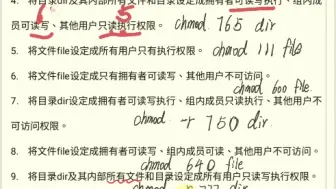 4. 将目录dir及其内部所有文件和目录设定成拥有者可读写执行、组内成
员可读写、其他用户只读执行权限。 chmod 765 dir
5. 将文件file设定成所有用户只有执行权限。 chmod 111 file
6. 将文件file设定成只有拥有者可读写、其他用户不可访问。
chmod 600 file
7. 将目录dir设定成拥有者可读写执行、组内成员只读执行、其他用户不
可访问权限。 chmod -r 750 dir
8. 将文件file设定成拥有者可读写、组内成员可读、其他用户不可访问。
chmod 640 file
9. 将目录dir及其内部所有文件和目录设定成所有用户只读写执行权限。
chmod 777 dir